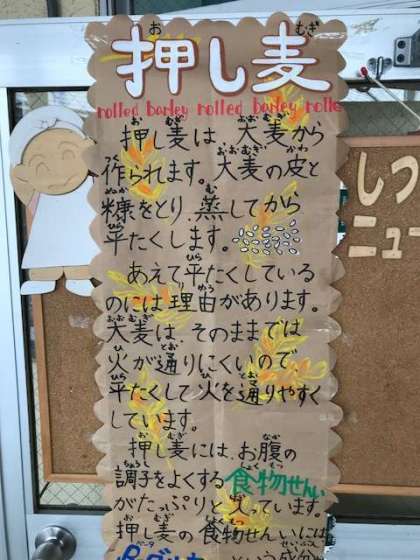 押し麦
rolled barley rolled barley rolle
押し麦は大麦から
作られます。大麦の皮と
糠をとり、蒸してから
平たくします。
あえて平たくしている
のには理由があります。
大麦は、そのままでは
火が通りにくいので
平たくして火を通りやすく
しています。
押し麦には、お腹の
調子をよくする食物せんい
がたっぷりと入っています。
押し麦の食物せんいには
しつ
ニュー